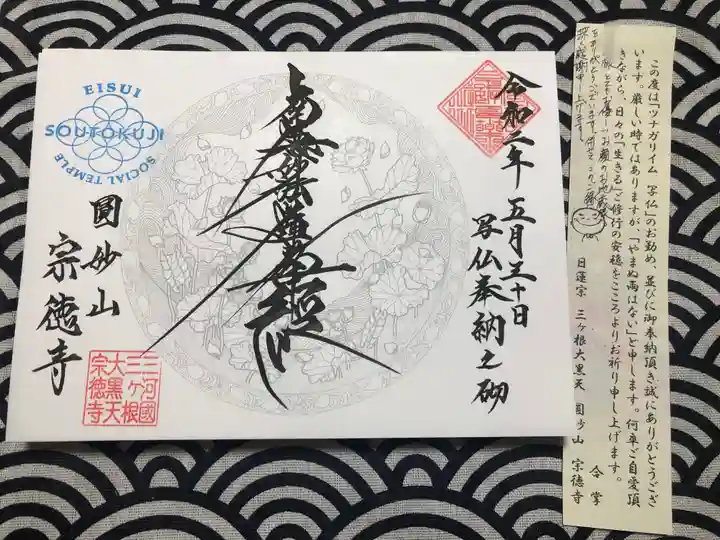 令和二年 五月三十日
写仏奉納之砌
南無妙法蓮華経
圓妙山
宗徳寺
EISUI
SOUTOKUJI
SOCIAL TEMPLE
三河國
三ヶ根
大黒天
宗徳寺
この度は「ツナガリイム 写仏」のお勤め、並びに御奉納頂き誠にありがとうござ
います。厳しい時ではありますが、「やまぬ雨はない」と申します。何卒ご自愛頂
きながら、日々の「生きる」ご修行の安穏をこころよりお祈り申し上げます。
合掌
日蓮宗 三ヶ根大黒天 圓妙山 宗徳寺